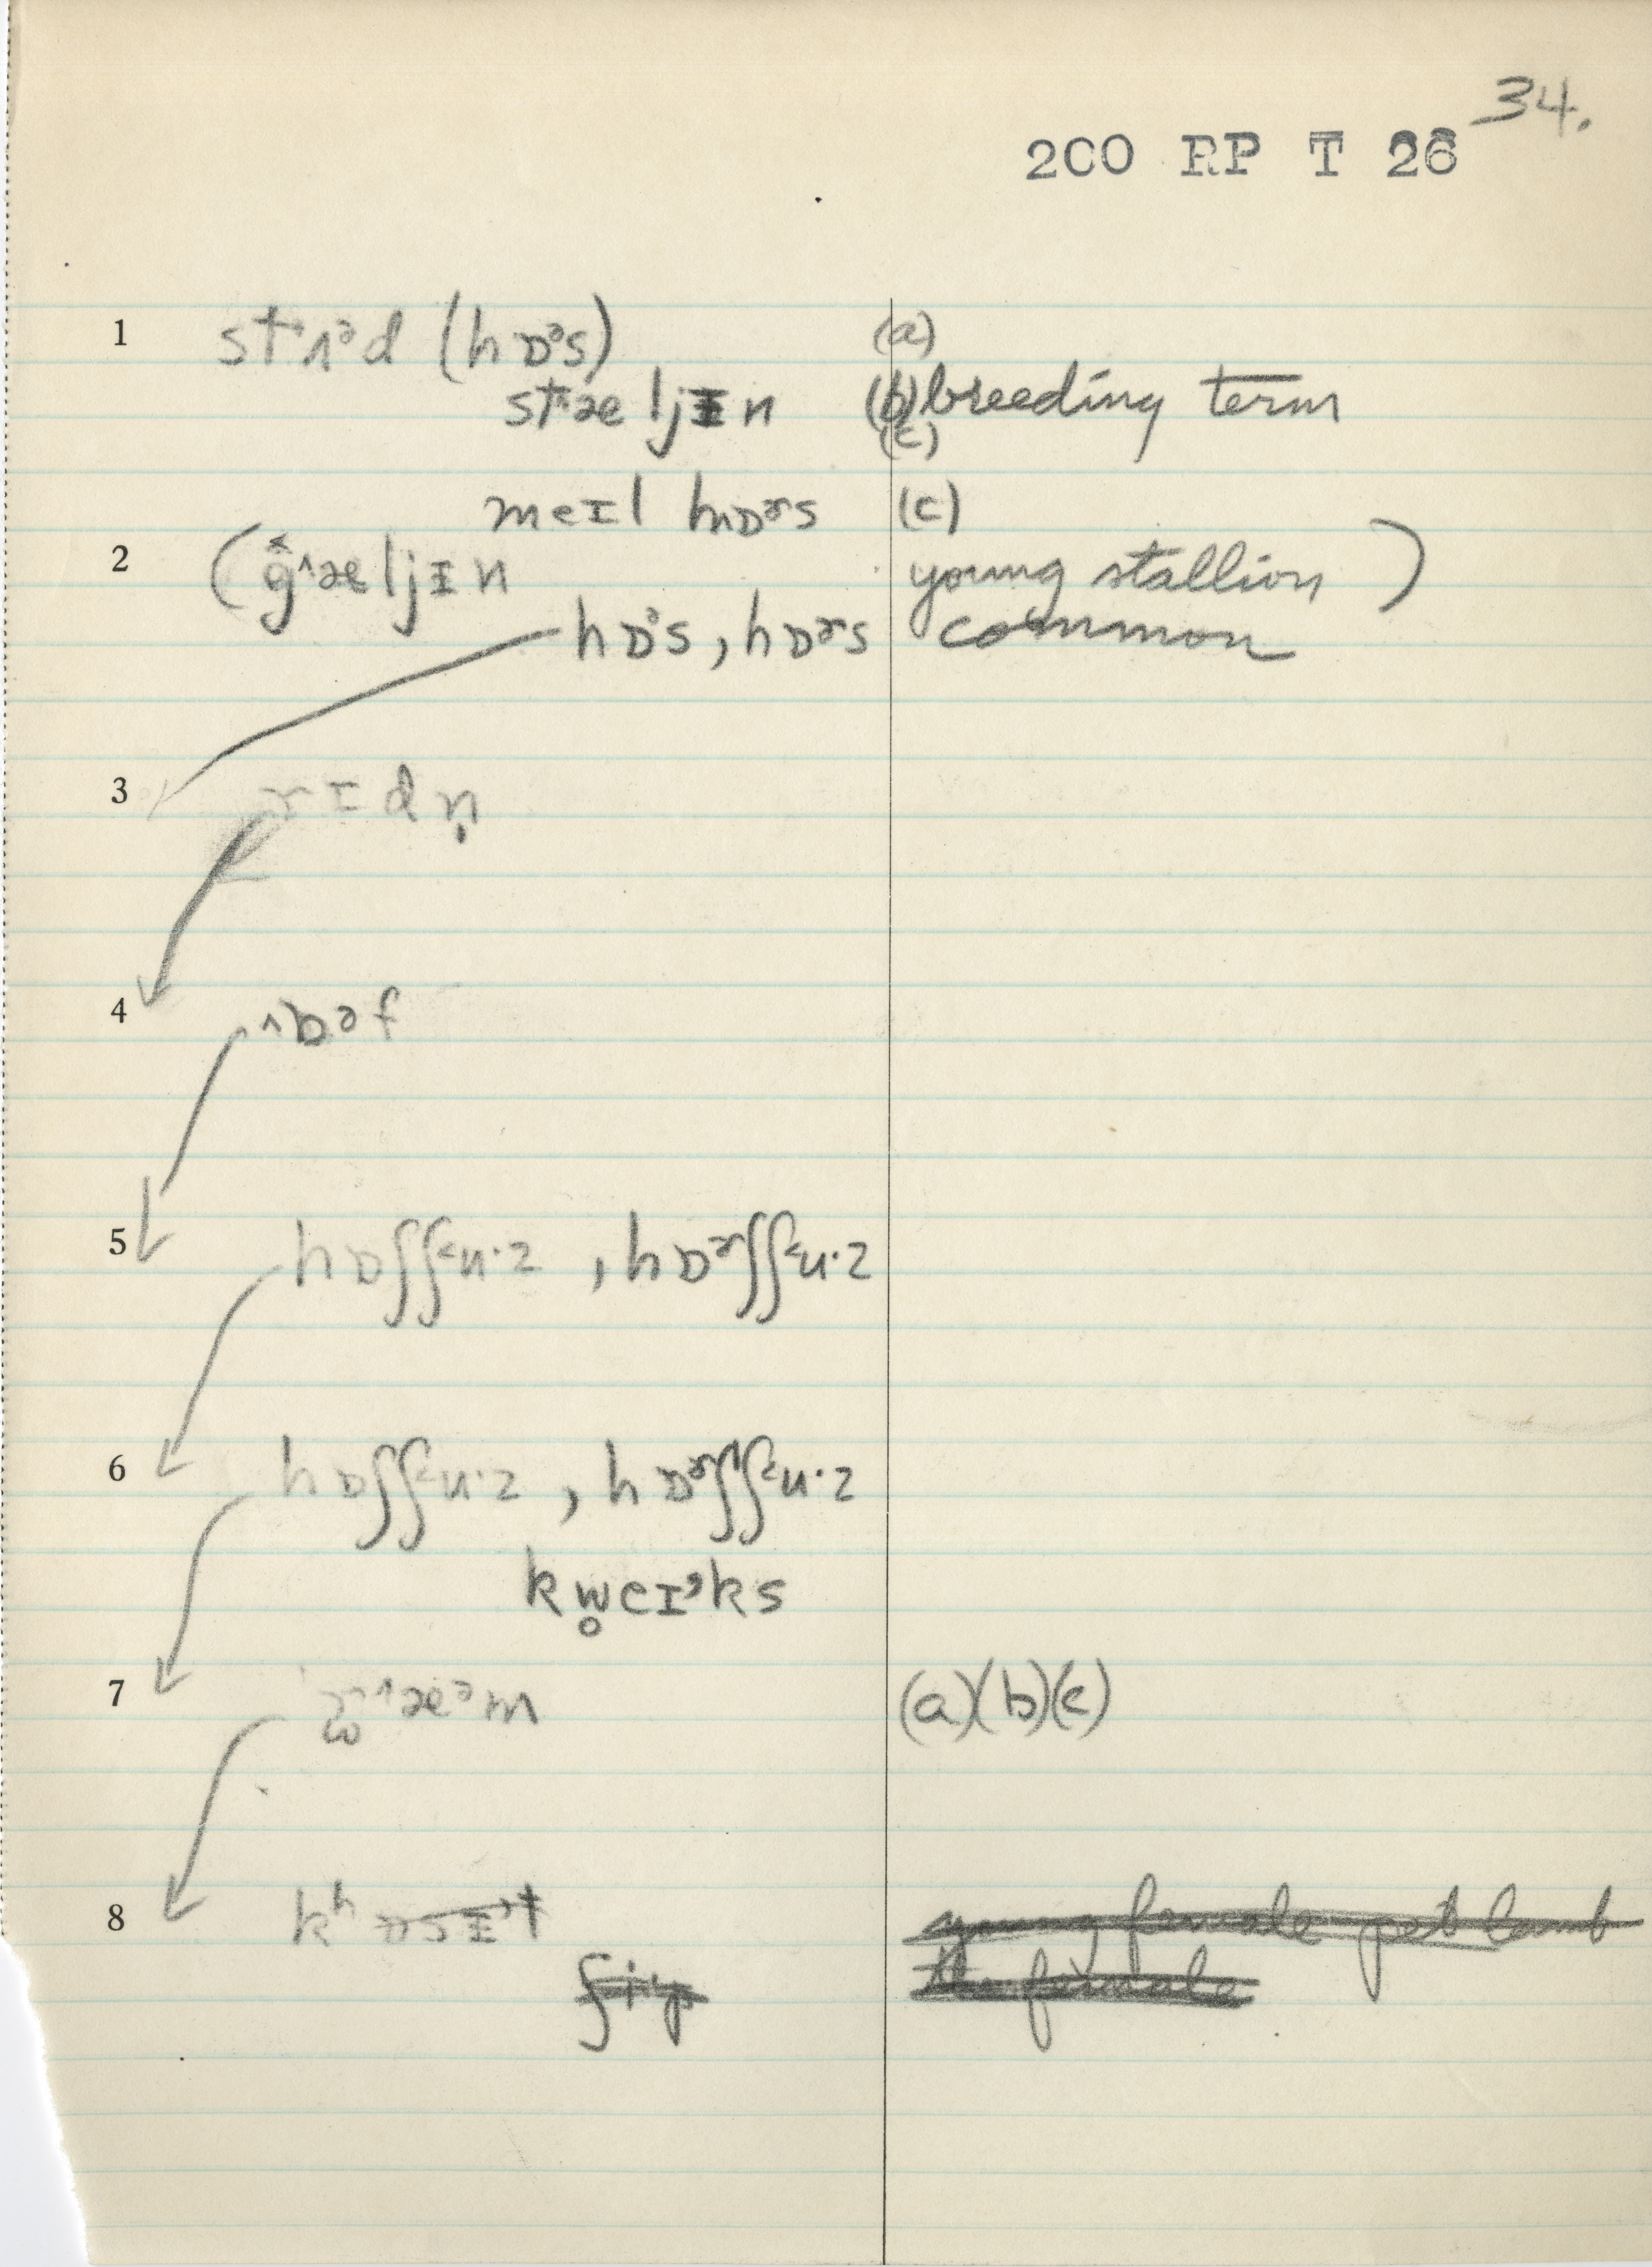 34.
200 RP T 26
1 st˄ʌᵊd (hɒᵊs) (a)
stæljɪn (b) breeding term
(c)
meɪl hɒɚs (c)
2 (g˄æljɪn young stallion)
hɒᵊs, hɒɚs common
3 rɪdn̩
4 ˄bəf
5 hɒʃʃ˂u·z, hɒɚʃʃ˂u·z
6 hɒʃʃ˂u·z, hɒɚʃʃ˂u·z
kw̥eɪˀks
7 (a)(b)(c)
8 young female pet lamb
the female